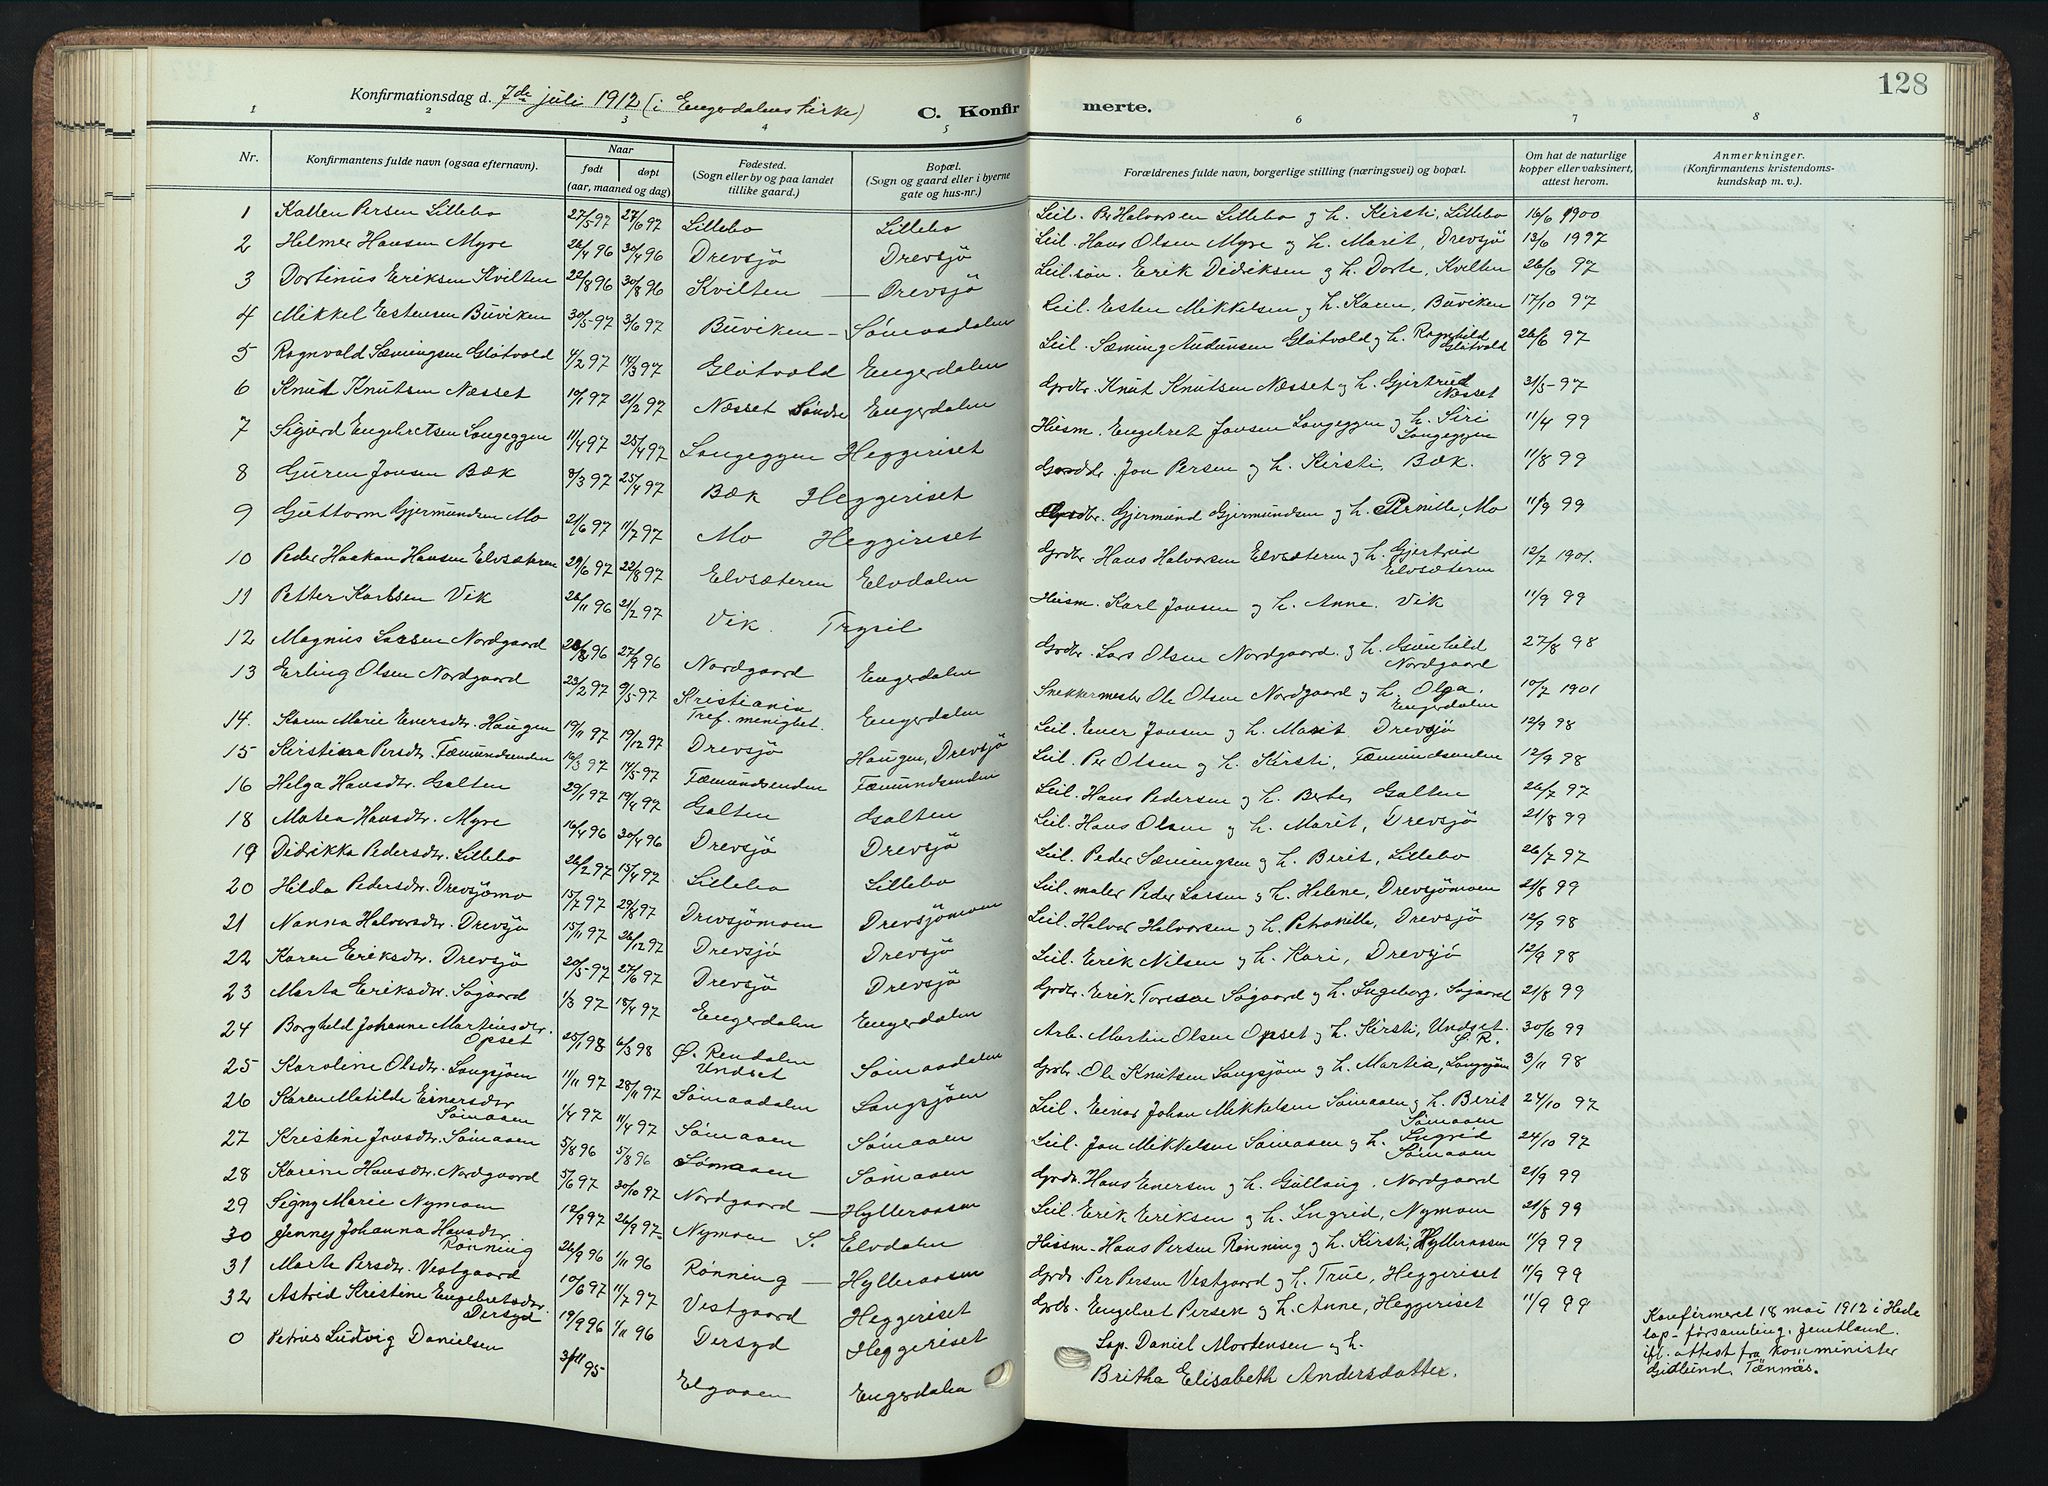 128
Konfirmationsdag d. 7de juli 1912 (i Engerdalens kirke)
C. Konfirmerte.
1 2 3 4 5 6 7 8
Nr. Konfirmantens fulde navn (ogsaa efternavn). Naar født døpt (aar, maaned og dag) Fødested. (Sogn eller by og paa landet tillike gaard.) Bopæl. (Sogn og gaard eller i byerne gate og hus-nr.) Forældrenes fulde navn, borgerlige stilling (næringsvei) og bopæl. Om hat de naturlige kopper eller vaksinert, attest herom. Anmerkninger. (Konfirmantens kristendomskundskap m. v.).
1 Kallen Persen Lillebo 27/5 97 27/6 97 Lillebo Lillebo Leil. Per Halvorsen Lillebo og h. Kirsti, Lillebo 16/6 1900
2 Helmer Hansen Myre 26/4 96 30/4 96 Drevsjö Drevsjö Leil. Hans Olsen Myre og h. Marit, Drevsjö 13/6 1997
3 Dortinus Eriksen Kvilten 22/8 96 30/8 96 Kvilten — Drevsjö Leil. søn. Erik Didriksen og h. Dorte, Kvilten 26/6 97
4 Mikkel Estensen Buviken 30/5 97 3/6 97 Buviken – Sømaadalen Leil. Esten Mikkelsen og h. Karen, Buviken 17/10 97
5 Ragnvald Sæmingsen Gløtvold 4/2 97 14/3 97 Gløtvold Engerdalen Leil. Sæming Audunsen Gløtvold og h. Ragnhild Gløtvold 26/6 97
6 Knut Knutsen Næsset 10/1 97 21/2 97 Næsset Søndre Engerdalen Grdbr. Knut Knutsen Næsset og h. Gjertrud Næsset 31/5 97
7 Sigurd Engebretsen Langeggen 11/4 97 25/4 97 Langeggen Heggeriset Husm. Engebret Jonsen Langeggen og h. Siri Langeggen 11/4 99
8 Guren Jonsen Bæk 8/3 97 25/4 97 Bæk Heggeriset Jon Persen og h. Kirsti, Bæk. 11/8 99
9 Guttorm Gjermundsen Mo 21/6 97 11/7 97 Mo Heggeriset Gjermund Gjermundsen og h. Pernille, Mo 11/9 99
10 Peder Haakon Hansen Elvsæteren 29/6 97 22/8 97 Elvsæteren Elvdalen Grdbr Hans Halvorsen Elvsæteren og h. Gjertrud Elvsæteren 12/7 1901.
11 Petter Karlsen Vik 26/11 96 21/2 97 Vik. Trysil Husm. Karl Jonsen og h. Anne. Vik 11/9 99
12 Magnus Larsen Nordgaard 28/8 96 27/9 96 Nordgaard Engerdalen Grdbr. Lars Olsen Nordgaard og h. Gunhild Nordgaard 27/8 98
13 Erling Olsen Nordgaard 23/2 97 9/5 97 Kristiania Tref. menighet. Engerdalen Snekkermester Ole Olsen Nordgaard og h. Olga. Engerdalen 10/7 1901
14. Karen Marie Enersdtr. Haugen 19/11 97 19/12 97 Drevsjö Haugen, Drevsjö Leil. Ener Jonsen og h. Marit Drevsjö 12/9 98
15 Kirstina Persdtr. Fæmundsenden 16/3 97 14/5 97 Fæmundsenden Fæmundsenden Leil. Per Olsen og h. Kirsti, Fæmundsenden 12/9 98
16 Helga Hansdtr. Galten 29/1 97 19/4 97 Galten Galten Leil. Hans Pedersen og h. Berte, Galten 26/7 97
18 Matea Hansdtr. Myre 16/4 96 30/4 96 Drevsjö Drevsjö Leil. Hans Olsen og h. Marit, Drevsjö 21/8 99
19 Didrikka Pedersdtr. Lillebo 26/2 97 15/4 97 Lillebo Lillebo Leil. Peder Sæmingsen og h. Berit, Lillebo 26/7 97
20 Hilda Pedersdtr. Drevsjömo 15/7 97 29/8 97 Drevsjömoen Drevsjömoen Leil. maler Peder Larsen og h. Helene, Drevsjömoen 21/8 99
21 Nanna Halvorsdtr. Drevsjö 15/11 97 26/12 97 Drevsjö Drevsjö Leil. Halvor Halvorsen og h. Petronille, Drevsjö 12/9 98
22 Karen Eriksdtr. Drevsjö 20/5 97 27/6 97 Drevsjö Drevsjö Leil. Erik Nilsen og h. Kari, Drevsjö 12/9 98
23 Marta Eriksdtr. Søgaard 1/3 97 18/4 97 Engerdalen Engerdalen Grdbr. Erik Toresen Søgaard og h. Ingeborg, Søgaard 21/8 99
24 Borghild Johanne Martinsdtr. Opset 25/1 98 6/3 98 Ø. Rendalen Undset Sømaadalen Arb. Martin Olsen Opset og h. Kirsti, Undset Ø. R. 30/6 99
25 Karoline Olsdtr. Langsjøen 11/11 97 28/11 97 Sømaadalen Langsjøen Grdbr Ole Knutsen Langsjøen og h. Martia, Langsjøen 3/11 98
26 Karen Matilde Einersdtr Sømaaen 1/4 97 11/4 97 Sømaaen Sømaaen Leil. Einar Johan Mikkelsen Sømaaen og h. Berit Sømaaen 24/10 97
27 Kristine Jonsdtr. Sømaaen 5/8 96 5/8 96 Sømaaen Sømaaen Leil. Jon Mikkelsen Sømaaen og h. Ingrid Sømaaen 24/10 97
28 Karine Hansdtr. Nordgaard 5/6 97 30/10 97 Nordgaard — Hylleraasen Grdr. Hans Enersen og h. Gullaug, Nordgaard 21/9 99
29 Signy Marie Nymoen 12/9 97 26/9 97 Nymoen S. Elvdalen Leil. Erik Eriksen og h. Ingrid, Nymoen 21/8 99
30 Jenny Johanna Hansdtr. Rønning 26/9 96 1/11 96 Rønning — Hylleraasen Husm. Hans Persen Rønning og h. Kirsti, Hylleraasen 11/9 99
31 Marte Persdtr. Vestgaard 10/6 97 11/7 97 Vestgaard Heggeriset Grdr. Per Persen Vestgaard og h. True, Heggeriset 11/9 99
32 Astrid Kristine Engebretsdtr. Dersyd 19/9 96 1/11 96 Dersyd Heggeriset Grdr. Engebret Persen og h. Anne, Heggeriset 11/9 99
0 Petrus Ludvig Danielsen 3/11 95 Elgaaen Engerdalen Lap. Daniel Mortensen og h. Britha Elisabeth Andersdatter.
Konfirmeret 18 mai 1912 i Hede
lap-forsamling, Jemtland.
ifl. attest fra komminister
Gidlund, Tännäs.